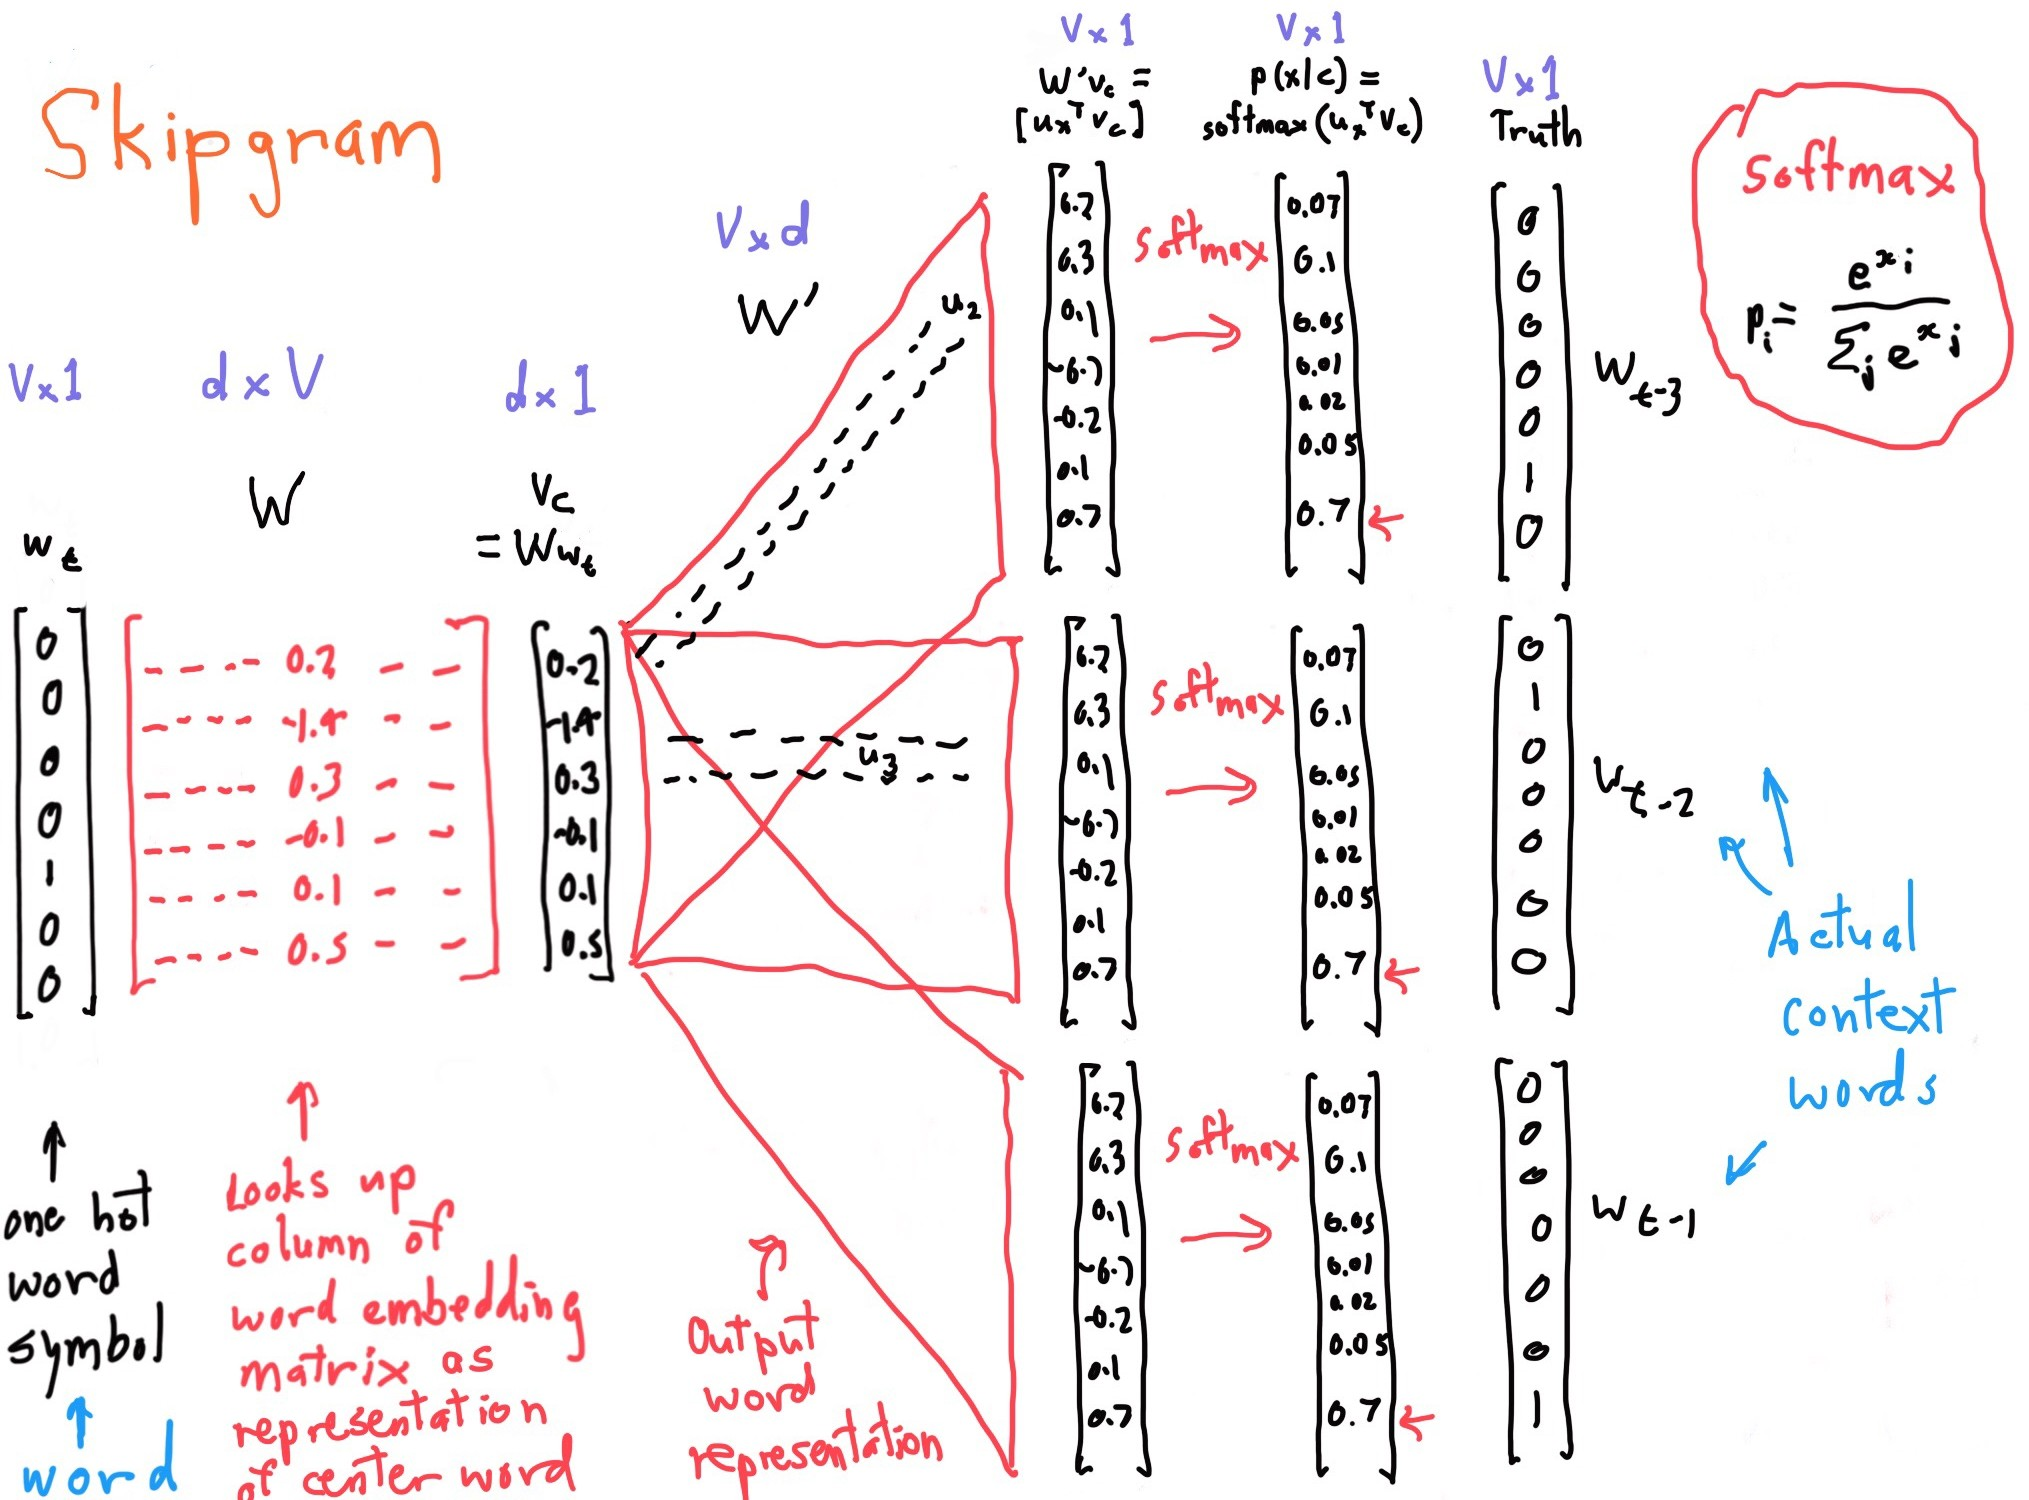 Skipgram
V×1
w_t
0
0
0
0
1
0
0
↑
one hot
word
symbol
↑
word
d×V
W
--- 0.2 --
--- -1.4 --
--- 0.3 --
--- -0.1 --
--- 0.1 --
--- 0.5 --
↑
Looks up
column of
word embedding
matrix as
representation
of center word
d×1
v_c
= Ww_t
0.2
-1.4
0.3
-0.1
0.1
0.5
V×d
W'
u_2
u_3
Output
word
representation
V×1
W'v_c =
[u_x^T v_c]
6.7
6.3
0.1
-6.7
-0.2
0.1
0.7
softmax
→
V×1
p(x|c) =
softmax(u_x^T v_c)
0.07
0.1
0.05
0.01
0.02
0.05
0.7 ←
V×1
Truth
0
0
0
0
0
1
0
W_t-3
6.7
6.3
0.1
-6.7
-0.2
0.1
0.7
softmax
→
0.07
0.1
0.05
0.01
0.02
0.05
0.7 ←
0
1
0
0
0
0
0
W_t-2
6.7
6.3
0.1
-6.7
-0.2
0.1
0.7
softmax
→
0.07
0.1
0.05
0.01
0.02
0.05
0.7 ←
0
0
0
0
0
0
1
W_t-1
Actual
context
words
softmax
p_i = e^x_i / Σ_j e^x_j